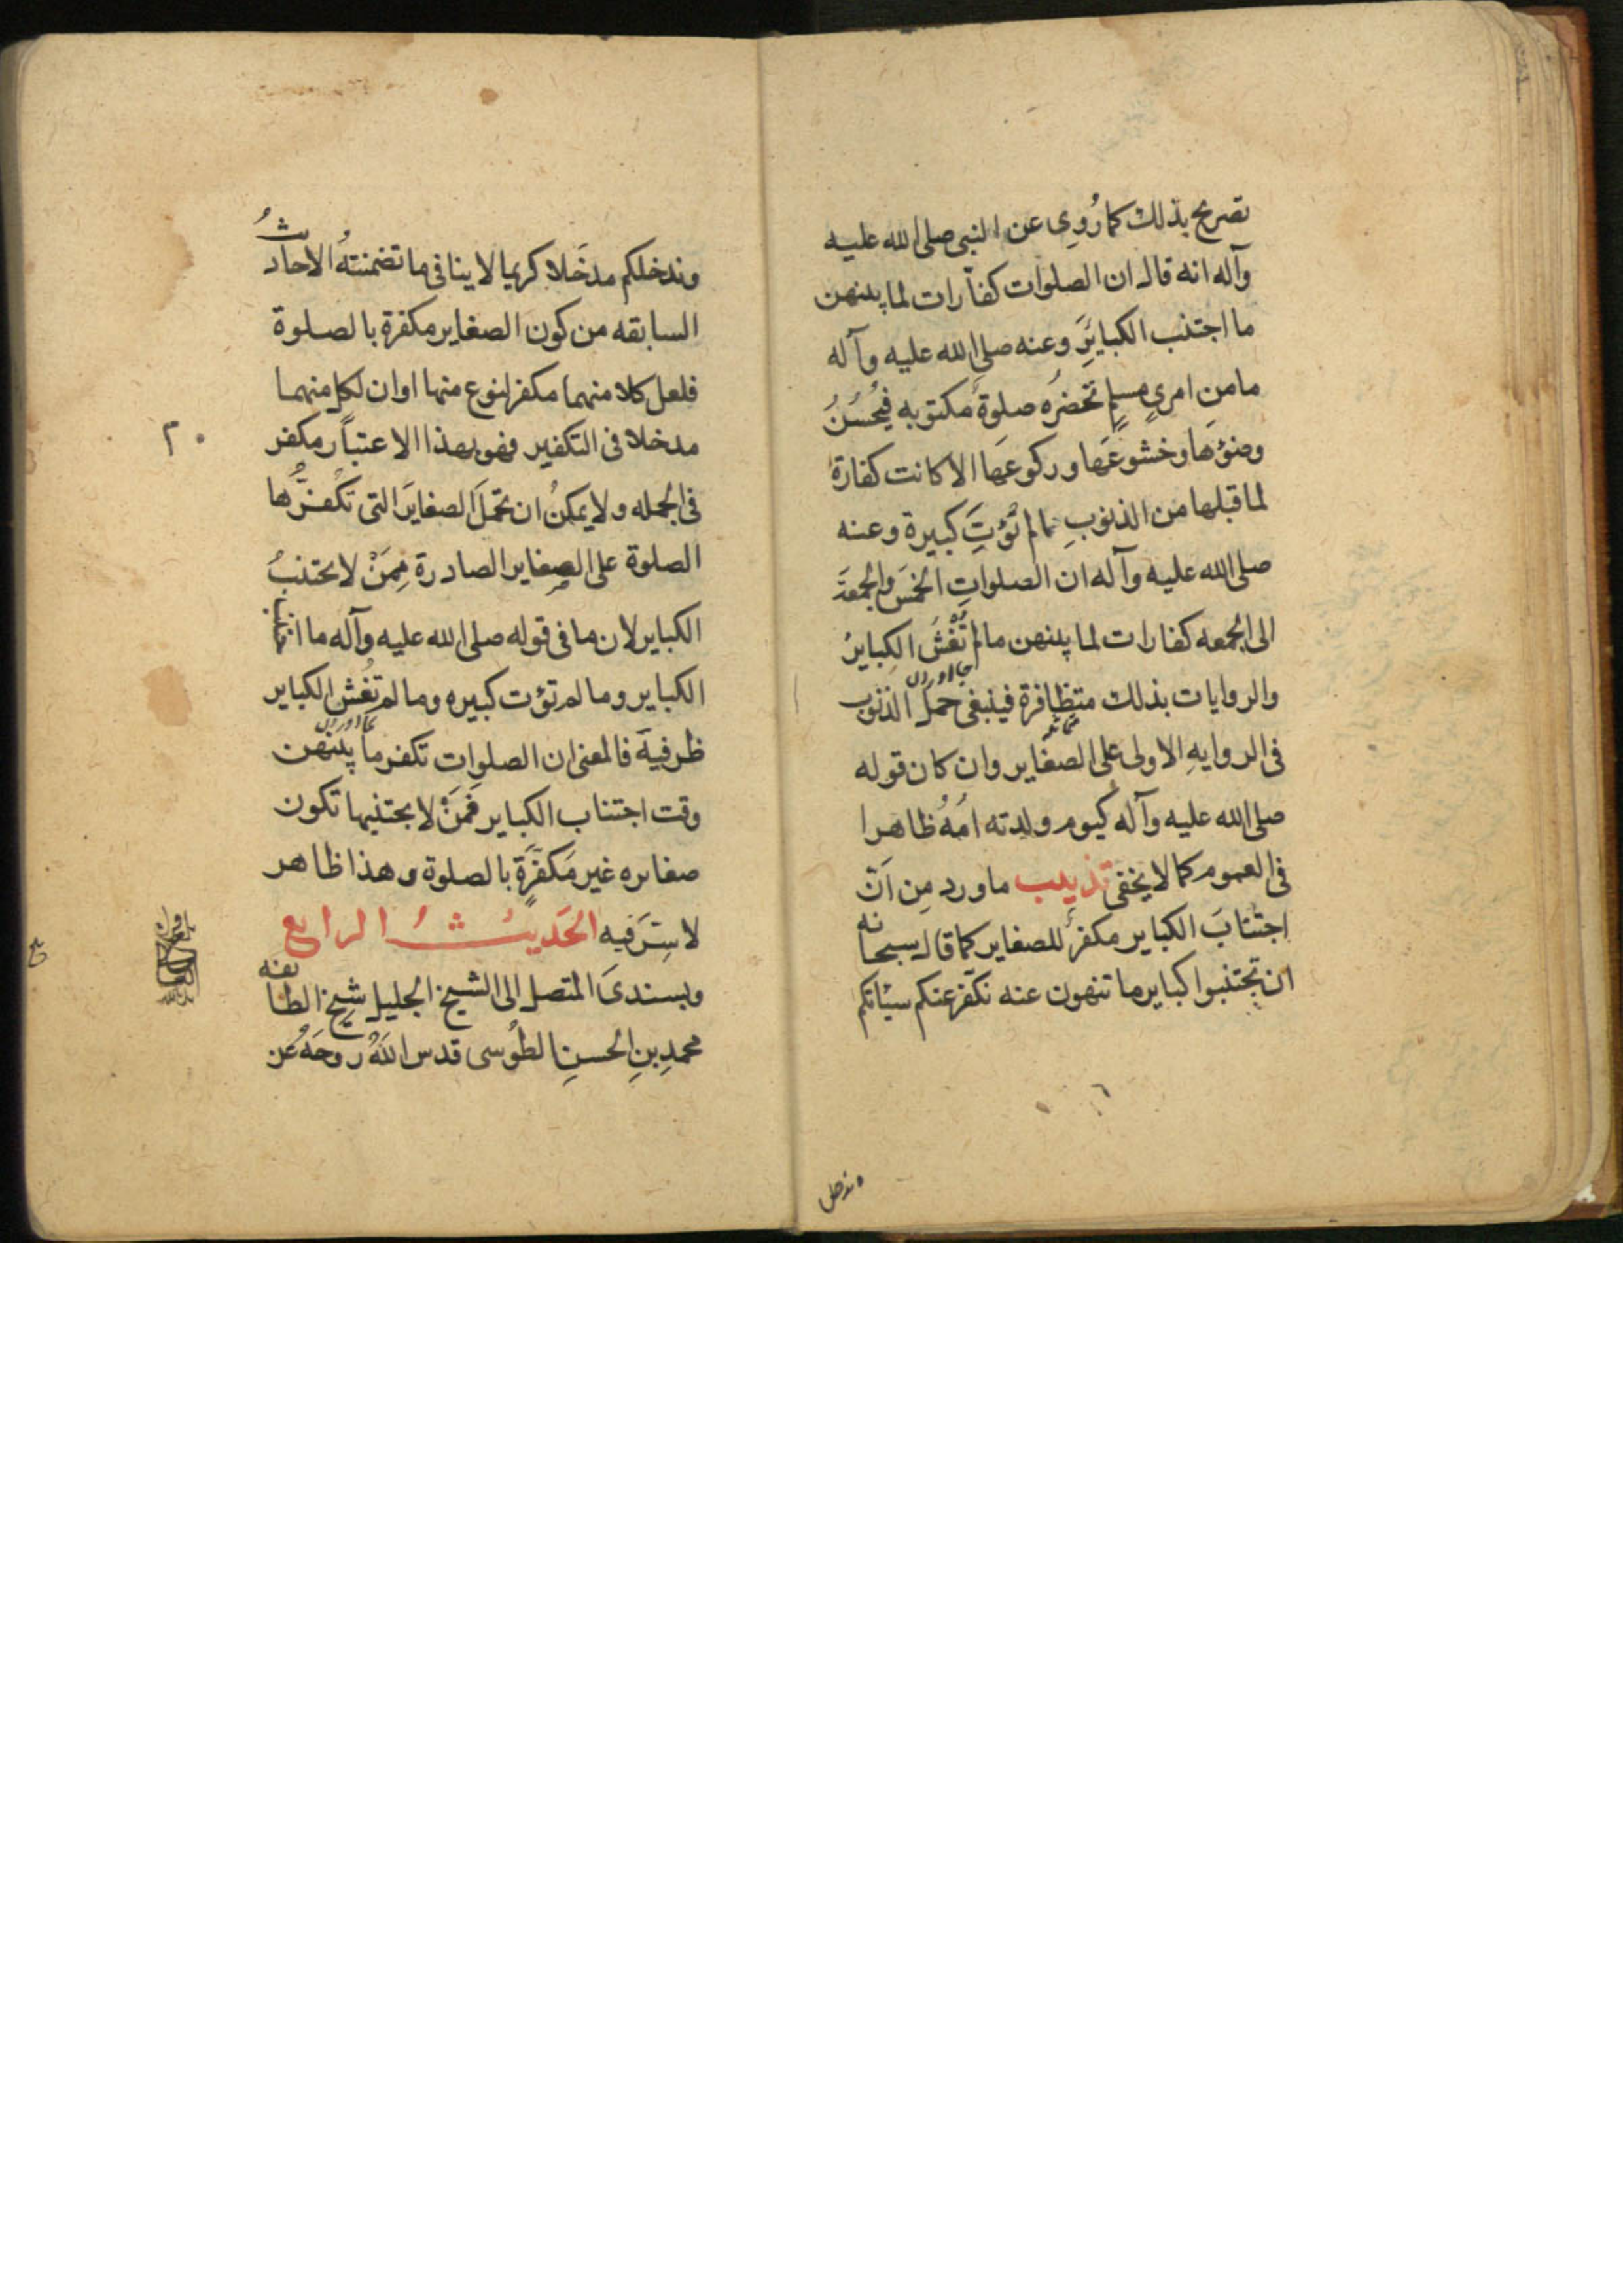 تصريح بذلك كما رُوِي عن النبى صلى الله عليه
وآله انه قال ان الصلوات كفّارات لما بينهن
ما اجتنب الكبايرَ وعنه صلى الله عليه وآله
ما من امرىٍ مسلمٍ تحضرُه صلوةٌ مكتوبه فيُحْسِنُ
وضوءَها وخشوعَها وركوعَها الا كانت كفارةً
لما قبلها من الذنوبِ مالم تُؤتَ كبيرة وعنه
صلى الله عليه وآله ان الصلواتِ الخمسَ والجمعةَ
الى الجمعه كفارات لما بينهن مالم تُغْشَ الكبايرُ
والروايات بذلك متظافرة فينبغى حملُ الذنوب
فى الروايهِ الاولى على الصغاير وان كان قوله
صلى الله عليه وآله كيوم ولدته امُّهُ ظاهرا
فى العموم كما لا يخفى تذييب ما ورد مِن اَنّ
اجتنابَ الكباير مكفرٌ للصغاير كما قال سبحانه
ان تجتنبوا كباير ما تنهون عنه نكفر عنكم سيّاتكم
وندخلكم مدخَلا كريما لا ينافى ما تضمنتهُ الاحاديثُ
السابقه من كون الصغاير مكفرة بالصلوة
فلعل كلا منهما مكفر لنوع منها او ان لكل منهما
مدخلا فى التكفير فهو بهذا الاعتبار مكفر
٢٠
فى الجمله ولا يمكنُ ان تحمَلَ الصغايرَ التى تكفّرُها
الصلوة على الصغاير الصادرة مِمَنْ لا يجتنبُ
الكباير لان ما فى قوله صلى الله عليه وآله ما اجتنب
الكباير وما لم تؤت كبيره وما لم تُغْش الكباير
ظرفيهَ فالمعنى ان الصلوات تكفر ما بَيْنَهُن
وقت اجتناب الكباير فمَنْ لا يجتنبها تكون
صغايره غير مُكفّرةٍ بالصلوة وهذا ظاهر
لا سِترَ فيه الحَديثُ الرابع
وبسندىَ المتصل الى الشيخ الجليل شيخ الطائفه
محمدِ بنِ الحسنِ الطُوسى قدس اللهُ روحَهُ عن